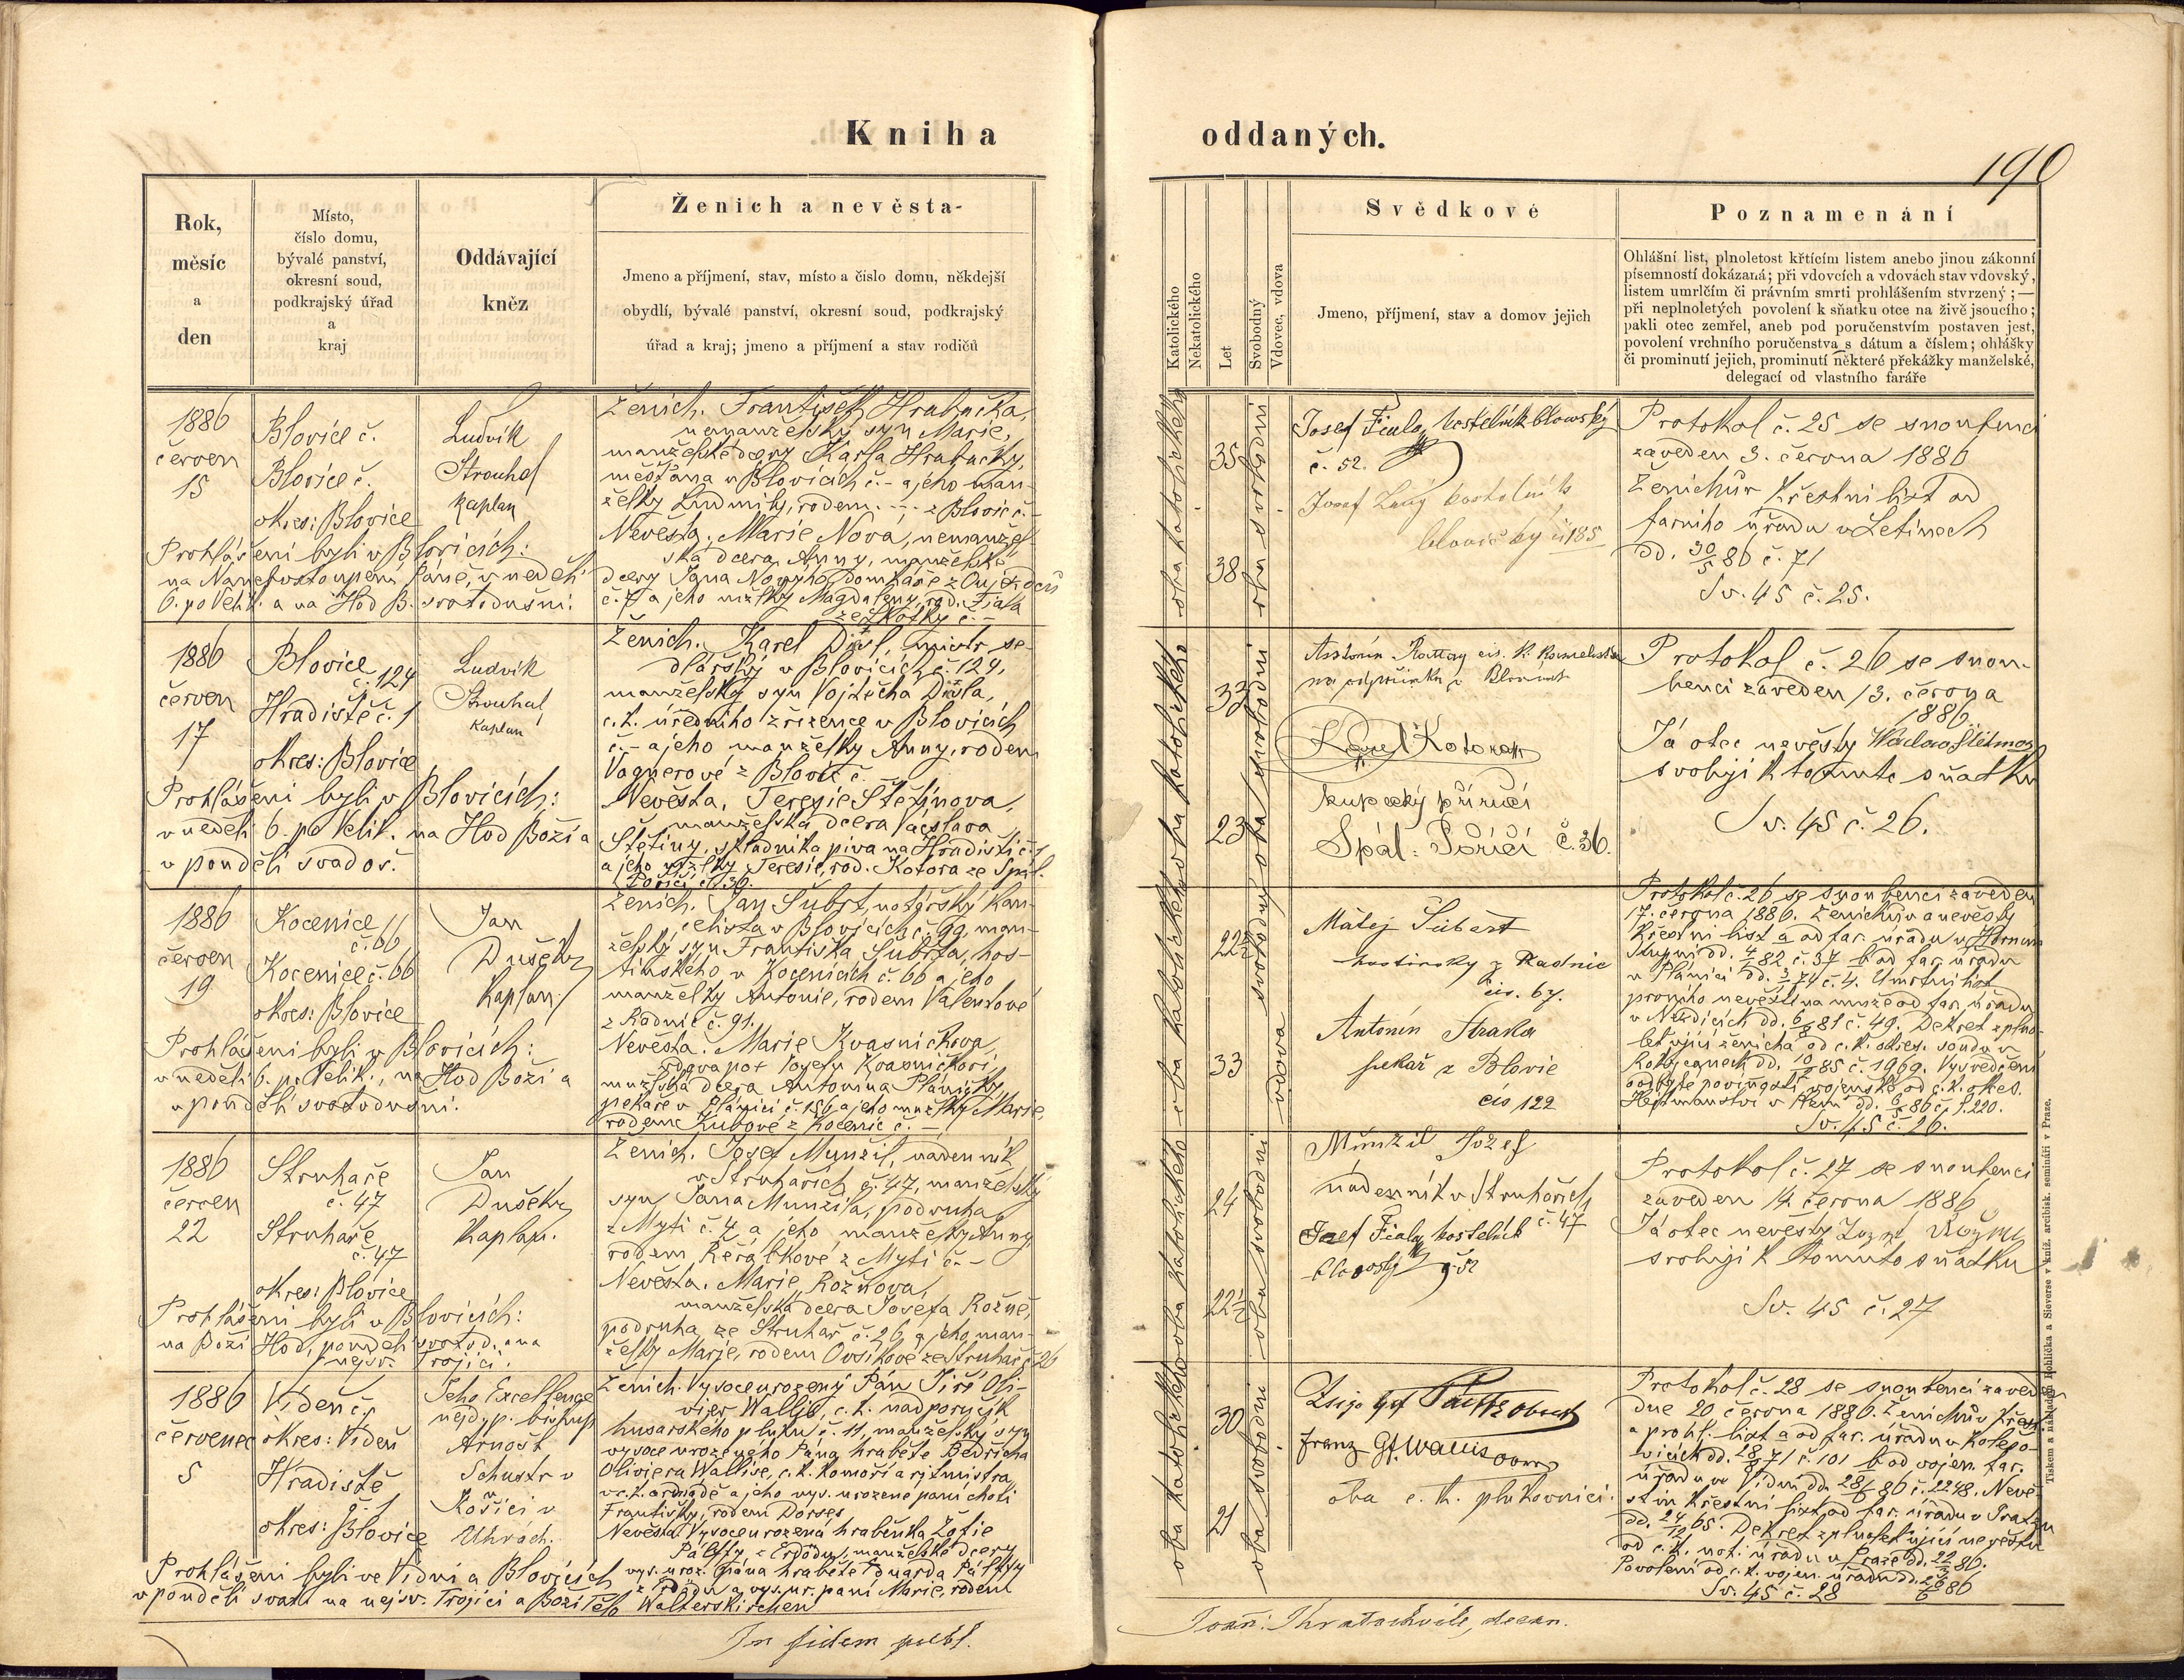 Kniha oddaných.
190
Rok,
měsíc
a
den
Místo,
číslo domu,
bývalé panství,
okresní soud,
podkrajský úřad
a
kraj
Oddávající
kněz
Ženich a nevěsta-
Jmeno a příjmení, stav, místo a číslo domu, někdejší
obydlí, bývalé panství, okresní soud, podkrajský
úřad a kraj; jmeno a příjmení a stav rodičů
Katolického
Nekatolického
Let
Svobodný
Vdovec, vdova
Svědkové
Jmeno, příjmení, stav a domov jejich
Poznamenání
Ohlášní list, plnoletost křtícím listem anebo jinou zákonní
písemností dokázaná; při vdovcích a vdovách stav vdovský,
listem umrlčím či právním smrti prohlášením stvrzený ;—
při neplnoletých povolení k sňatku otce na živě jsoucího;
pakli otec zemřel, aneb pod poručenstvím postaven jest,
povolení vrchního poručenstva s dátum a číslem; ohlášky
či prominutí jejich, prominutí některé překážky manželské,
delegací od vlastního faráře
1886
červen
15
Blovice č.
Blovice č.
okres: Blovice
Ludvík
Strouhal
kaplan
Prohlášeni byli v Blovicích:
na Nanebvstoupení Páně, v neděli
6. po Velik. a na Hod B. svatodušní.
Ženich. František Hrabačka,
nemanželský syn Marie,
manželské dcery Karla Hrabačky,
měšťana v Blovicích č.- a jeho man-
želky Ludmily, rodem --- z Blovic č.-
Nevěsta. Marie Nová, nemanžel-
ská dcera Anny, manželské
dcery Jana Nového, domkáře z
č. 7 a jeho mželky Magdaleny, rod. Fiala
35
38
Josef Fiala kostelník blovský
č. 52.
Josef
č 185
Protokol č. 25 se snoubenci
zaveden 3. června 1886
Ženichův křestní list od
farního úřadu v Letinech
dd. 30/5 86 č. 71
Sv. 45 č. 25.
1886
červen
17
Blovice
č. 124
Hradiště č. 1
okres: Blovice
Ludvík
Strouhal
kaplan
Prohlášeni byli v Blovicích:
v neděli 6. po Velik. na Hod Boží a
v pondělí svatoduš.
Ženich. Karel
dlářský v Blovicích č. 129,
manželský syn Vojtěcha
c. k. úředního zřízence v Blovicích
č.- a jeho manželky Anny, rodem
Vagnerové z Blovic č.
Nevěsta, Teresie Štětinova,
manželská dcera Václava
Štětiny, skladníka piva na Hradišti č. 1
a jeho mželky Teresie, rod. Kotora ze Spál.
Poříčí č. 36.
33
23
Karel Kotora
kupecký příručí
Spál. Poříčí č. 36.
Protokol č. 26 se snou-
benci zaveden 13. června
1886
Já otec nevěsty
svoluji k tomuto sňatku
Sv. 45 č. 26.
1886
červen
19
Kocenice
č. 66
Kocenice č. 66
okres: Blovice
Jan
Dušek
Kaplan
Prohlášeni byli v Blovicích:
v neděli 6. p. Velik., na Hod Boží a
v pondělí svatodušní.
Ženich. Jan Šubrt, notářský kan-
celista v Blovicích č. 99, man-
želský syn Františka Šubrta, hos-
tinského v Kocenicích č. 66 a jeho
manželky Antonie, rodem Valentové
z Radnic č. 91.
Nevěsta. Marie Kvasničkova,
vdova po + Josefu Kvasničkovi,
mželská dcera Antonína
pekaře v Plánici č. 156 a jeho mželky Marie,
rodem Kubové z Kocenic č. -
22½
33
vdova
Matěj Šubert
hostinsky z Radnic
čis. 67.
Antonín Straka
pekař z Blovic
čís 122
Protokol č. 26 se snoubenci zaveden
17. června 1886. Ženichův a nevěsty
křestní list a od far. úřadu v
dd. 4/ 82 č. 37 b od far. úřadu
v Plánici dd. č. 4. Úmrtní list
prvního nevěstina muže od far. úřadu
v Nezdicích dd. 6/ 81 č. 49. Dekret zplno-
letující ženicha od c. k. okres. soudu v
Rokycanech dd. 10/ 85 č. 1969. Vysvědčení
odbyté povinnosti vojenské od c. k. okres.
Hejtmanství v dd. 6/ 86 č. 220.
Sv. 45 č. 26.
1886
červen
22
Struhaře
č. 47
Struhaře
č. 47
okres: Blovice
Jan
Dušek
Kaplan.
Prohlášeni byli v Blovicích:
na Boží Hod, pondělí svatod. a na
nejsv. Trojici.
Ženich. Josef Munžil, nádenník
v Struhařích č. 47, manželský
syn Jana Munžila, podruha
z Mytí č. 4 a jeho manželky Anny
rodem z Mytí č. -
Nevěsta. Marie Rožňova,
manželská dcera Josefa Rožně,
podruha ze Struhař č. 26 a jeho man-
želky Marie, rodem Ovsíkové ze Struhař č. 26
24
22½
Munžil Jozef
nádenník v Struhařích
č. 47
Josef Fiala kostelník
blovský č. 52
Protokol č. 27 se snoubenci
zaveden 14 června 1886
Já otec nevěsty
svoluji k tomuto sňatku
Sv. 45 č. 27
1886
červenec
5
Vídeň č.
okres: Vídeň
Hradiště
č. 1
okres: Blovice
Jeho Excellence
nejdp. biskup
Arnošt
Schuster v
Košici v
Uhrách.
Prohlášeni byli ve Vídni a Blovicích
v pondělí svatod. na nejsv. Trojici a Boží Tělo
Ženich. Vysoceurozený Pán Jiří Oli-
vier Wallis, c. k. nadporučík
husarského pluku č. 11, manželský syn
vysoce urozeného Pána hraběte Bedřicha
Oliviera Wallise, c. k. komoří a rytmistra
v c. k. armádě a jeho vys. urozené paní choti
Františky, rodem Dorses
Nevěsta Vysoceurozená hraběnka Žofie
Pálffy z Erdödu, manželské dcery
vys. uroz. Pána hraběte Eduarda Pálffy
z Erdödu a vys. ur. paní Marie, rodem
Walterskirchen
30
21
Franz Gf. Wallis
oba c. k. plukovníci.
Protokol č. 28 se snoubenci zaveden
dne 20 června 1886. Ženichův křest.
a prohl. list a od far. úřadu v
dd. 28/ 71 č. 101 b od vojen. far.
úřadu ve Vídni dd. 28/6 86 č. 2248. Nevě-
stin křestní list od far. úřadu v
dd. 24/12 65. Dekret zplnoletující nevěstu
od c. k. not. úřadu v Praze dd. 22/ 86.
Povolení od c. k. vojen. úřadu dd. 86
Sv. 45 č. 28
oba katolického
oba svobodni
In fidem publ.
Joan: Chratochvile, decan.
Tiskem a nákladem Rohlíčka a Sieverse v kníž. arcibisk. semináři v Praze.